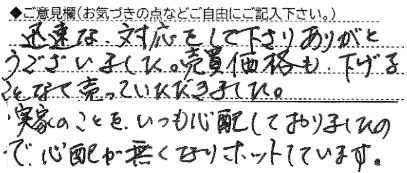 ◆ご意見欄(お気づきの点などご自由にご記入下さい。)
迅速な対応をして下さりありがと
うございました。売買価格も下げる
ことなく売っていただきました。
実家のことをいつも心配しておりましたの
で心配が無くなりホットしています。